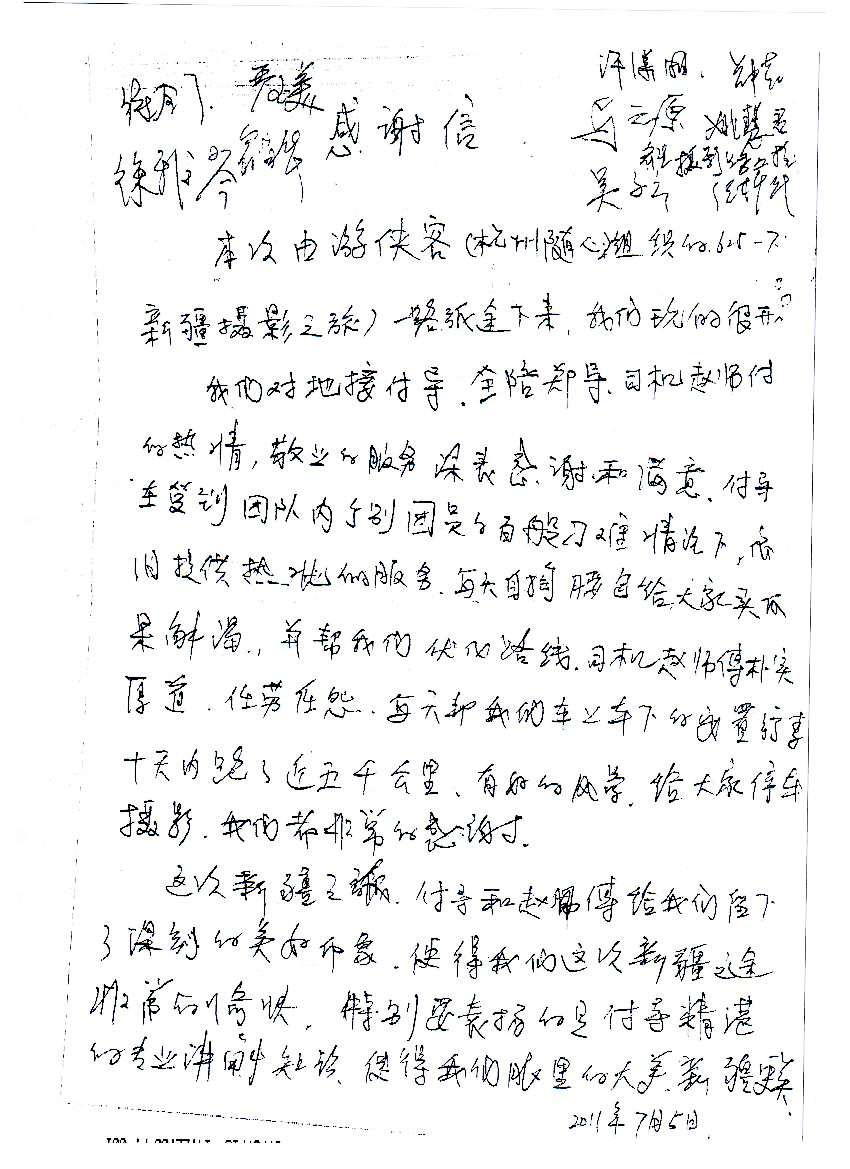 感谢信
徐雅琴
吴
本次由游侠客(杭州随心组织的6.25-7.
新疆摄影之旅)一路旅途下来,我们玩的很开心
我们对地接付导、全陪郑导、司机赵师付
的热情,敬业的服务深表感谢和满意、付导
在受到团队内个别团员的百般刁难情况下,依
旧提供热忱的服务、每天自掏腰包给大家买水
果解渴,并帮我们优化路线、司机赵师傅朴实
厚道、任劳任怨、每天帮我们车上车下的放置行李
十天内跑了近五千公里、有好的风景、给大家停车
摄影、我们都非常的感谢!
这次新疆之旅、付导和赵师傅给我们留下
了深刻的美好印象、使得我们这次新疆之途
非常的愉快,特别要表扬的是付导精湛
的专业讲解知识、使得我们眼里的大美新疆更美、
2011年7月5日